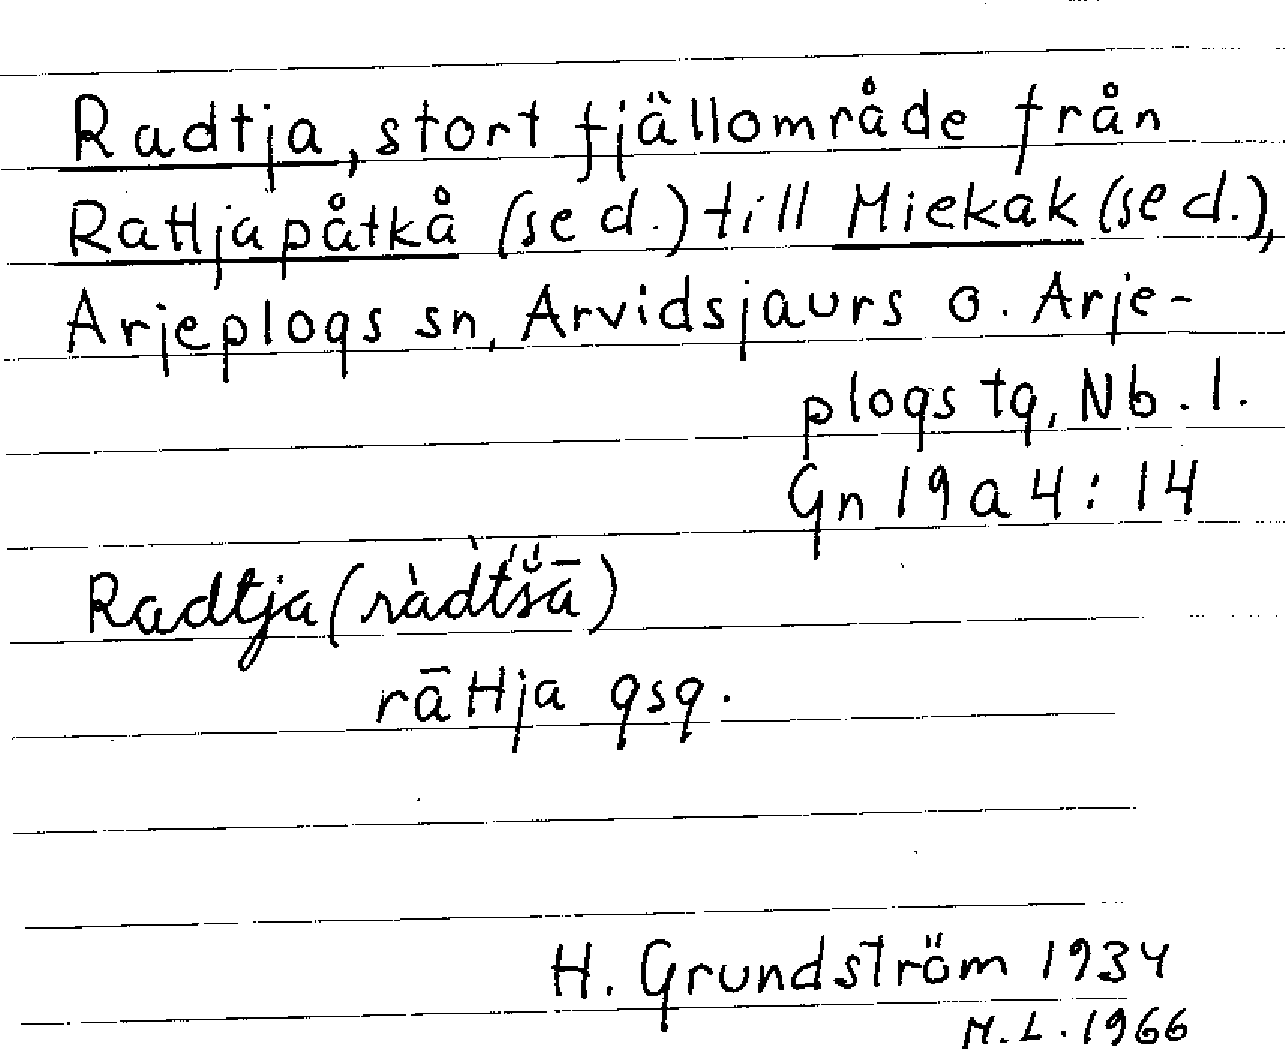 Radtja, stort fjällområde från
Rattjapåtkå (se d.) till Miekak (se d.),
Arjeplogs sn, Arvidsjaurs o. Arje-
plogs tg, Nb. l.
Gn 19 a 4 : 14
Radtja (ràdtšā)
rāttja gsg.
H. Grundström 1934
M. L. 1966